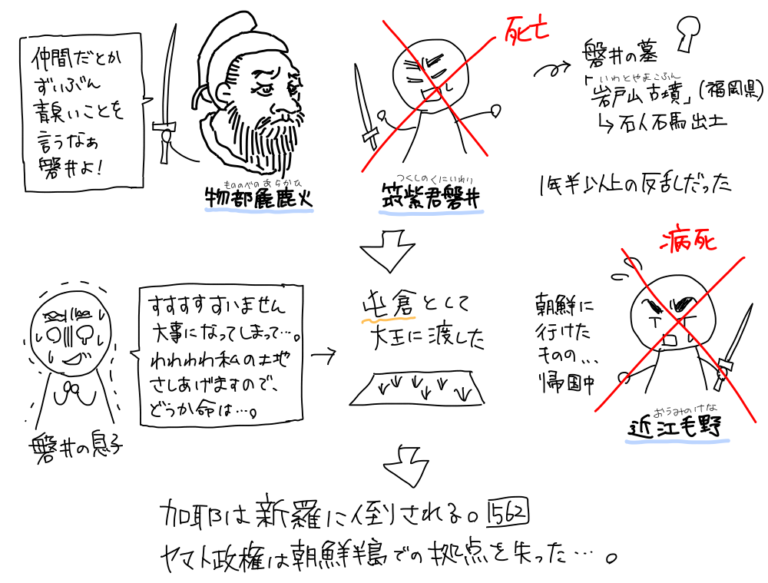 仲間だとか
ずいぶん
青臭いことを
言うなぁ
磐井よ!
もののべのあらかひ
物部麁鹿火
死亡
つくしのくにのいわい
筑紫君磐井
磐井の墓
いわとやまこふん
「岩戸山古墳」(福岡県)
↳石人石馬出土
1年半以上の反乱だった
すすすすすいません
大事になってしまって…。
わわわわ私の土地
さしあげますので、
どうか命は…。
磐井の息子
屯倉として
大王に渡した
病死
朝鮮に
行けた
ものの…
帰国中
おうみのけな
近江毛野
加耶は新羅に倒される。562
ヤマト政権は朝鮮半島での拠点を失った…。